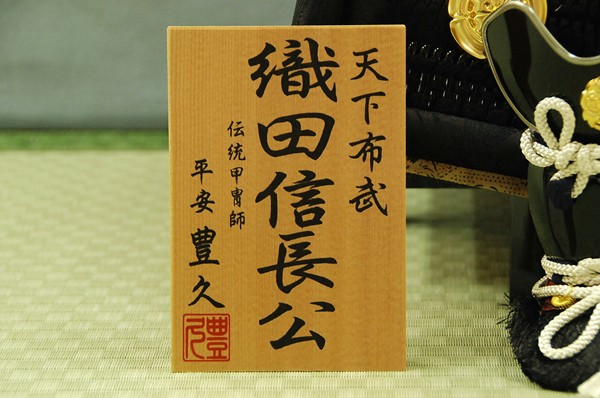 天下布武
織田信長公
伝統甲冑師
平安 豊久
豊久